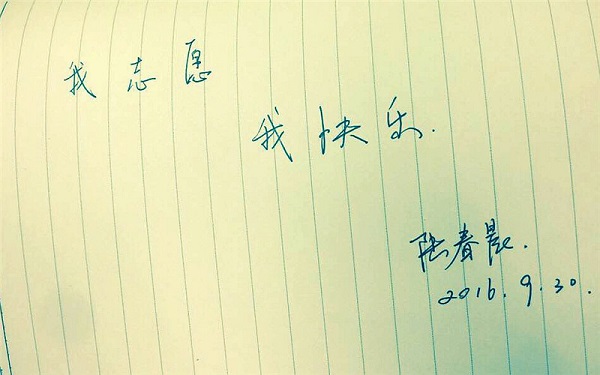 我志愿
我快乐.
陆春晨.
2016.9.30.